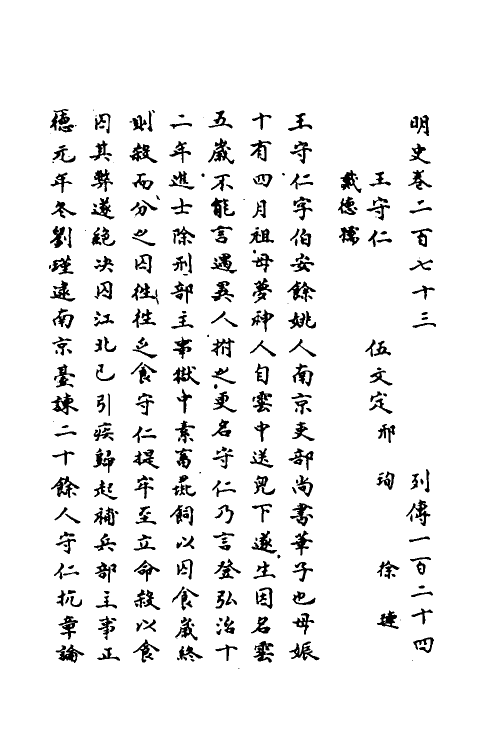 明史卷二百七十三　列傳一百二十四
王守仁　伍文定　邢珣　徐璉
戴德孺
王守仁字伯安餘姚人南京吏部尚書華子也母娠
十有四月祖母夢神人自雲中送兒下遂生因名雲
五歲不能言遇異人拊之更名守仁乃言登弘治十
二年進士除刑部主事獄中素畜彘飼以囚食歲終
則殺而分之囚徃徃乏食守仁提牢至立命殺以食
囚其弊遂絕决囚江北已引疾歸起補兵部主事正
德元年冬劉瑾逮南京臺諫二十餘人守仁抗章論